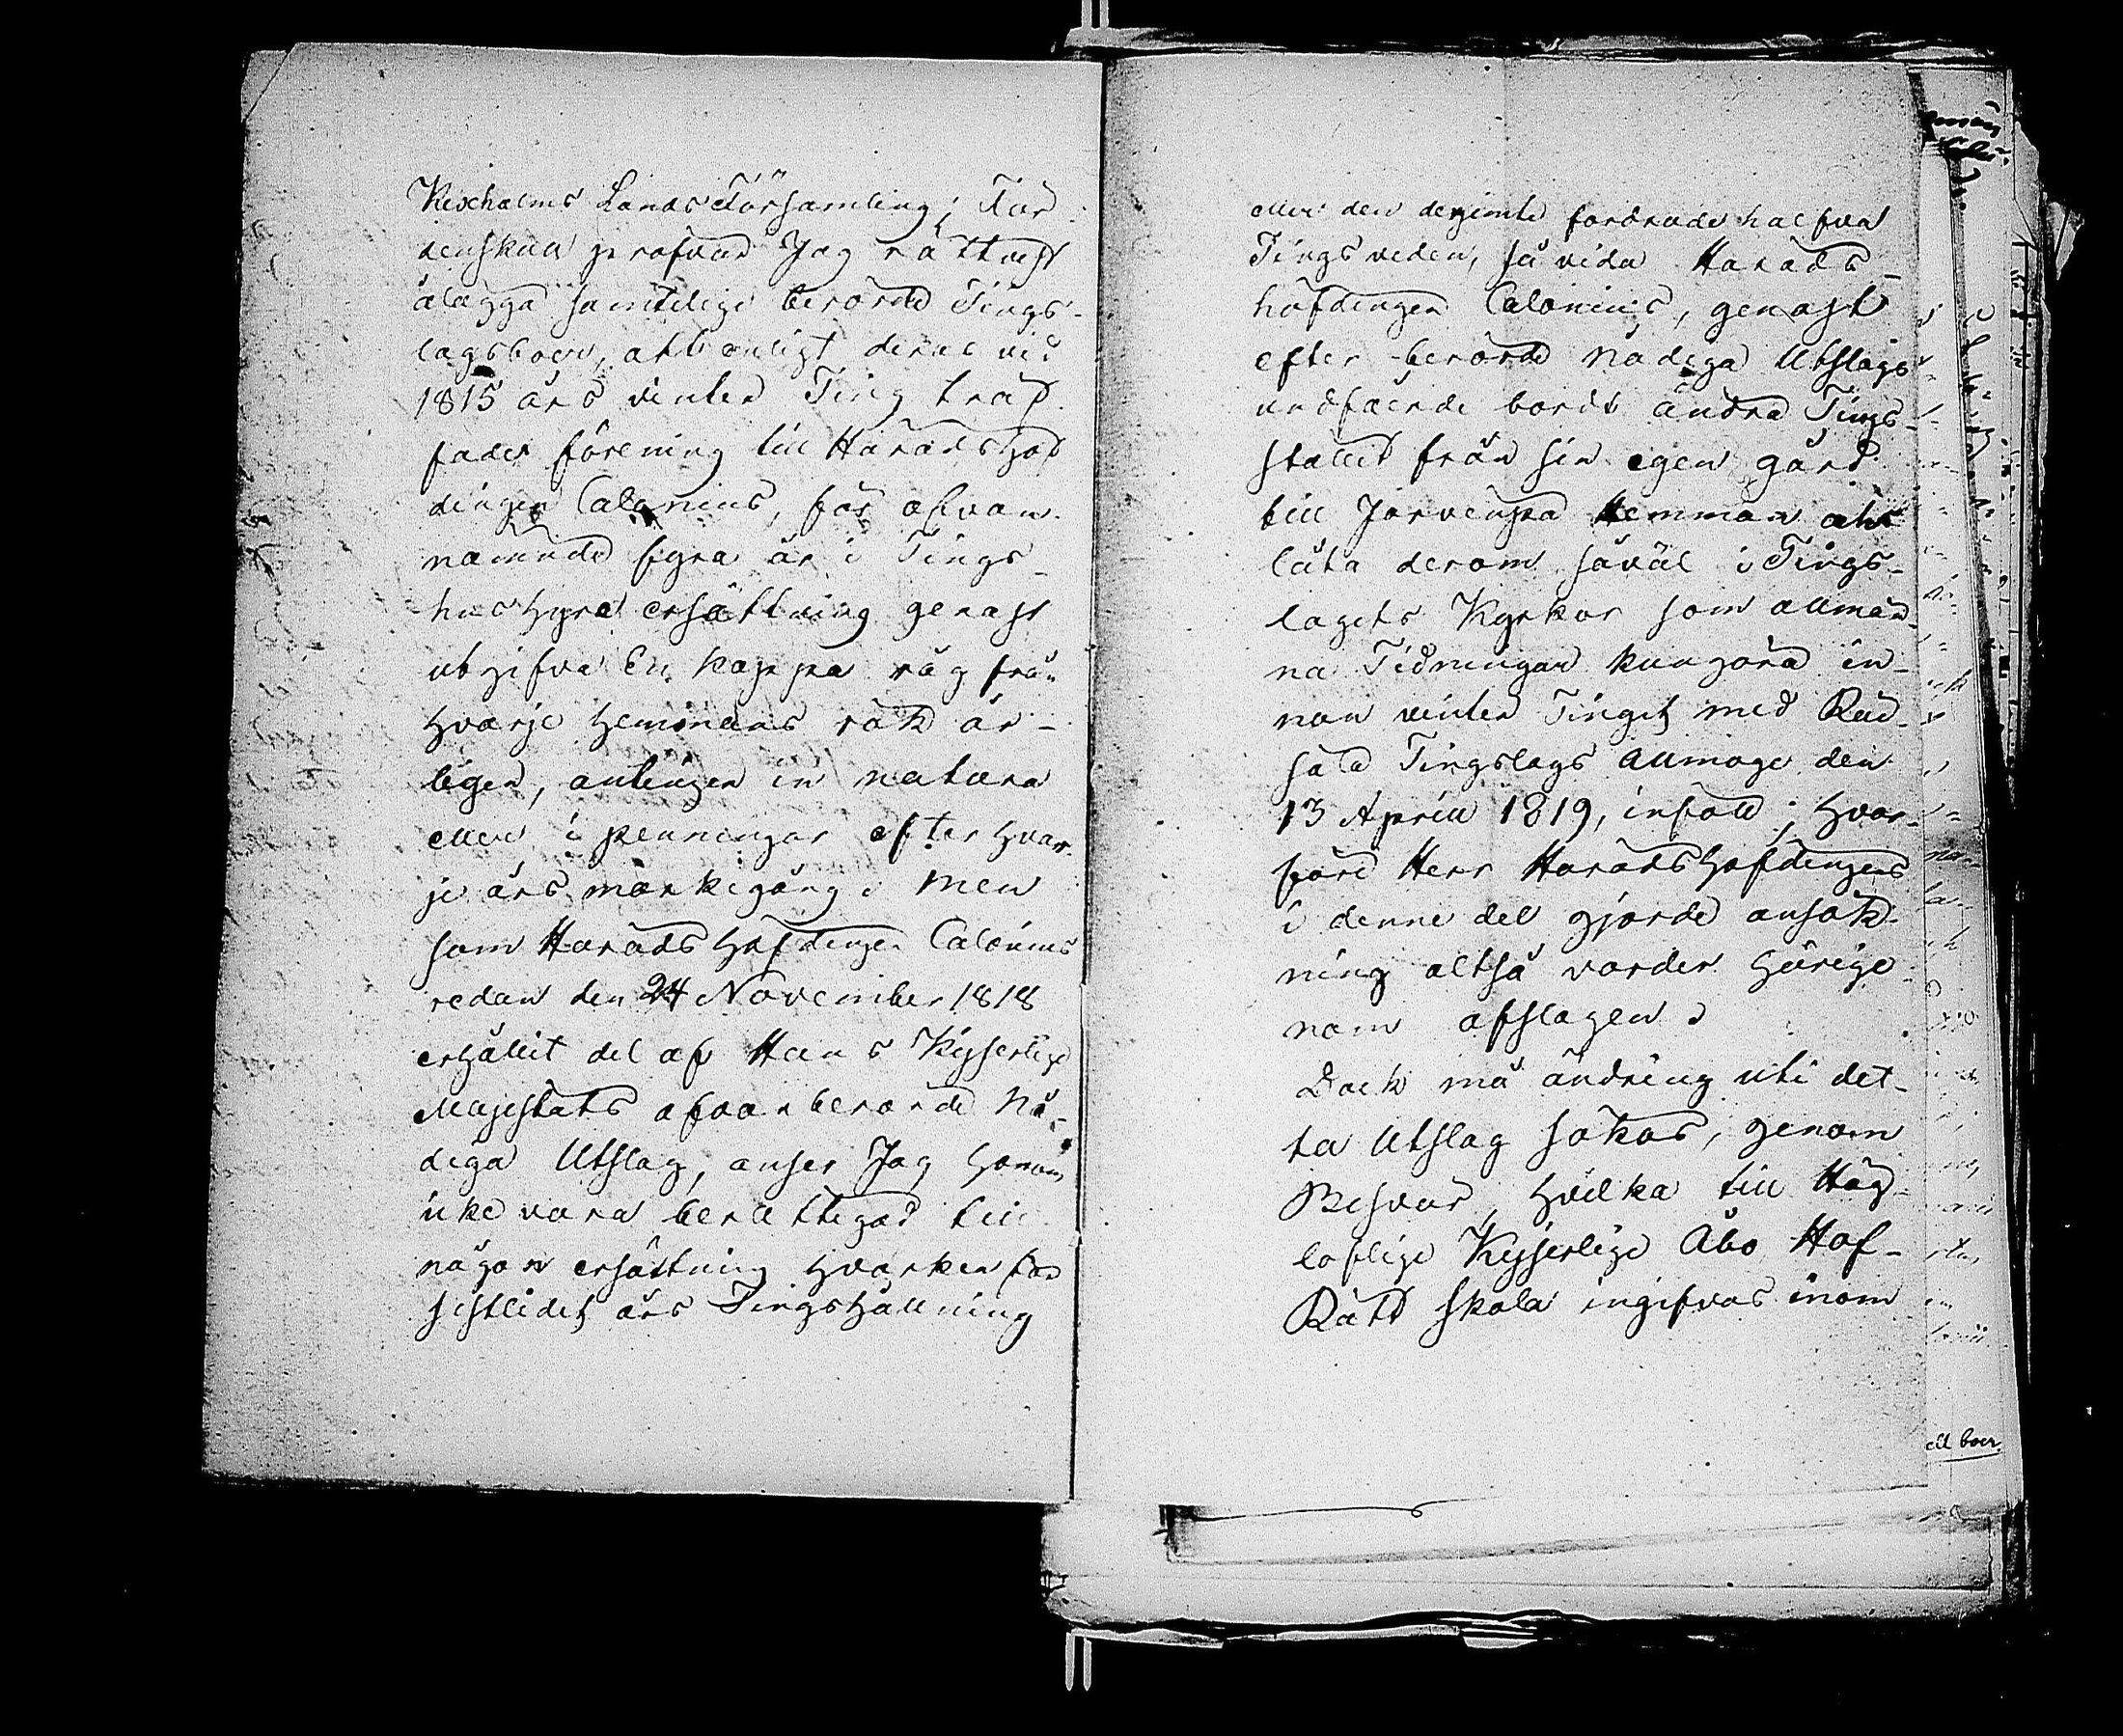 Kexholms Lands Församling; För
denskull pröfvar Jag rättvist
ålägga samtelige berörde Tings-
lagsboer, att enligt deras vid
1815 års vinter Ting träf-
fade förening till Häradshöf
dingen Calonius, för ofvan
nämnde fyra år i Tings-
hushyra ersättning genast
utgifva En kappa råg från
hvarje hemmans rök år-
ligen, antingen in natura
eller i penningar efter hvar-
je års markegång. Men
som Härads Höfdingen Calonius
redan den 24 November 1818
erhållit del af Hans Kejserlige
Majestäts ofvanberörde Nå-
diga Utslag, anser Jag honom
icke vara berättigad till
någon ersättning hvarken för
sistledet års Tingshållning
eller den derjemte fordrade halfva
Tings veden, så vida Härads-
höfdingen Calonius, genast
efter berörde nådiga Utslags
undfående bordt ändra Tings
stället från sin egen gård
till Jorvenpä Hemman och
låta derom såväl i Tings-
lagets Kyrkor som allmän
na Tidningar kungöra in-
nan vinter Tinget med Rai-
sala Tingslags Allmoge den
13 April 1819, inföll; Hvar-
före Herr Härads Höfdingens
i denne del gjorde ansök-
ning altså varder härige
nom afslagen.
Dock må ändring uti det-
ta Utslag sökas, genom
Besvär, hvilka till Hög
loflige Kejserlige Åbo Hof-
Rätt skola ingifvas inom
ell boer